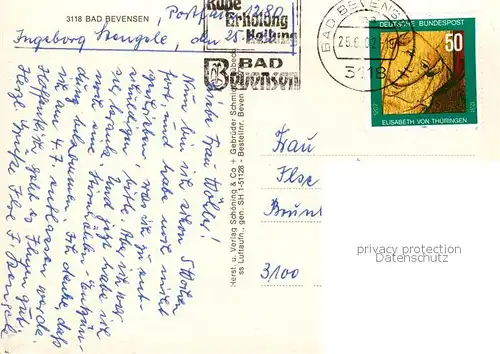 3118 BAD BEVENSEN
Postfach 1280
Ingeborg Stengele, den 25.
Ruhe
Erholung
Heilung
BAD
Bevensen
BAD BEVENSEN
25.6.82
3118
DEUTSCHE BUNDESPOST
50
ELISABETH VON THÜRINGEN
Liebe Frau Müller!
Nun bin ich schon 5 Wochen
fort, und habe noch nicht
geschrieben, was ich zu ent-
schuldigen bitte. Aber ich war
sehr krank und jetzt habe ich
noch eine
dazu bekommen. Ich denke daß
ich am 4.7. entlassen werde.
Hoffentlich geht es Ihnen gut.
Herzl. Grüße Ihre I. Stengele
Herst. u. Verlag Schöning & Co + Gebrüder Schmidt, Lübeck
ss Luftaufn., gen. SH 1-51128 - Bestellnr. Beven
Frau
Ilse
3100
privacy protection
Datenschutz